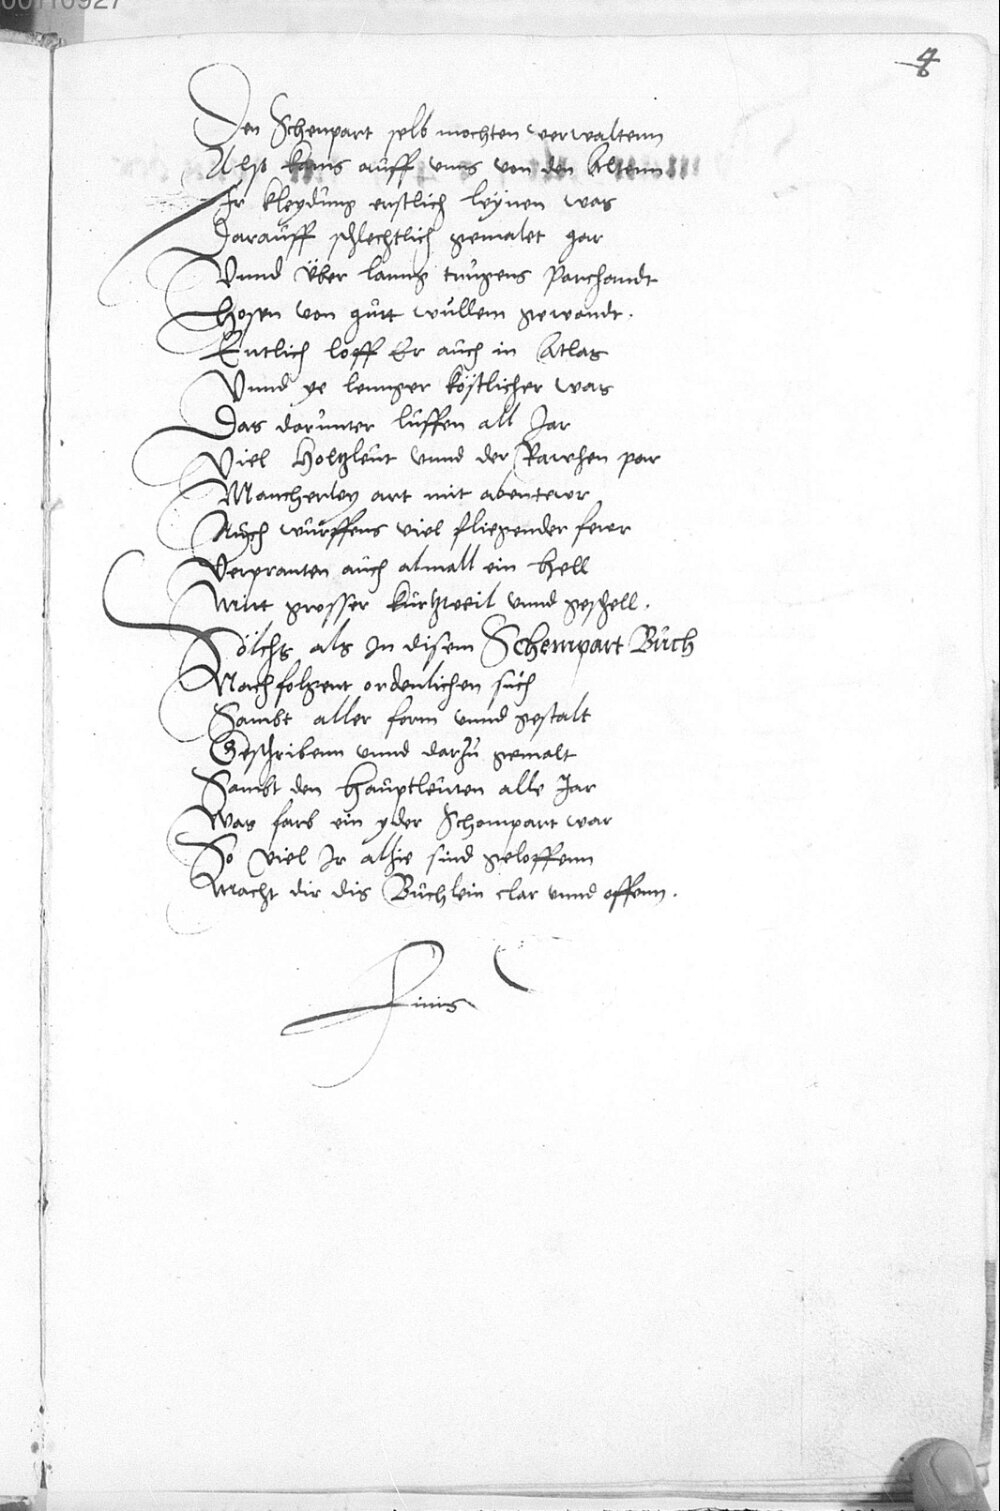 00110927
8
Den Schenpart selb mochten verwaltenn
Also kams auff vnns von den Altenn
Ir kleydung erstlich leynen was
Darauff schlechtlich gemalet gar
Vnnd Über lanng trugens Parchandt
Hosen von gutt wullem gewandt.
Entlich loff Er auch in Atlas
Vnnd ye lennger köstlicher was
Das darunter luffen all Jar
Viel Holtzleut vnnd der Rawhen par
Mancherley art mit abentewr
Auch wurffens viel fliegender fewr
Verpranten auch almall ein Hell
Mitt grosser kurtzweil vnnd geschell.
Sölchs als In disem Schempart Buch
Nachfolgent ordenlichen such
Sambt aller form vnnd gestalt
Geschribenn vnnd darzu gemalt
Sambt den Hauptleuten alle Jar
Was farb ein yder Schempart war
So viel Ir alhie sind geloffenn
Macht dir dis Buchlein clar vnnd offenn.
Finis